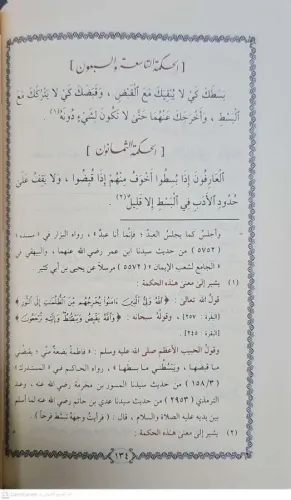 [ الحكمة التاسعة والسبعون ]
بَسَطَكَ كَيْ لَا يُبْقِيَكَ مَعَ الْقَبْضِ ، وَقَبَضَكَ كَيْ لَا يَتْرُكَكَ مَعَ
الْبَسْطِ ، وَأَخْرَجَكَ عَنْهُمَا حَتَّى لَا تَكُونَ لِشَيْءٍ دُونَهُ (١) .
[ الحكمة الثمانون ]
الْعَارِفُونَ إِذَا بُسِطُوا أَخْوَفُ مِنْهُمْ إِذَا قُبِضُوا ، وَلَا يَقِفُ عَلَى
حُدُودِ الْأَدَبِ فِي الْبَسْطِ إِلَّا قَلِيلٌ (٢) .
- وأجلس كما يجلس العبد ؛ فإنما أنا عبد » ، رواه البزار في « مسنده »
( ٥٧٥٢ ) من حديث سيدنا ابن عمر رضي الله عنهما ، والبيهقي في
« الجامع لشعب الإيمان » ( ٥٥٧٢ ) مرسلاً عن يحيى بن أبي كثير
(١) يشير إلى معنى هذه الحكمة :
قولُ الله تعالى : ﴿ اللَّهُ وَلِيُّ الَّذِينَ ءَامَنُوا يُخْرِجُهُم مِّنَ الظُّلُمَاتِ إِلَى النُّورِ ﴾
[البقرة : ٢٥٧] ، وقولُهُ سبحانه : ﴿ وَاللَّهُ يَقْبِضُ وَيَبْسُطُ وَإِلَيْهِ تُرْجَعُونَ ﴾
[البقرة : ٢٤٥] .
وقولُ الحبيب الأعظم صلى الله عليه وسلم : « فاطمةُ بضعةٌ مني ؛ يقبضُني
ما قبضها ، ويبسُطُني ما بسطها » ، رواه الحاكم في « المستدرك »
( ١٥٨/٣ ) من حديث سيدنا المسور بن مخرمة رضي الله عنه ، وعند
الترمذي ( ٢٩٥٣ ) من حديث سيدنا عدي بن حاتم رضي الله عنه لما أسلم
بين يديه عليه الصلاة والسلام ، قال : ( فرأيتُ وجهَهُ تبسَّطَ فرحاً ) .
(٢) يشير إلى معنى هذه الحكمة :
١٣٤
CamScanner